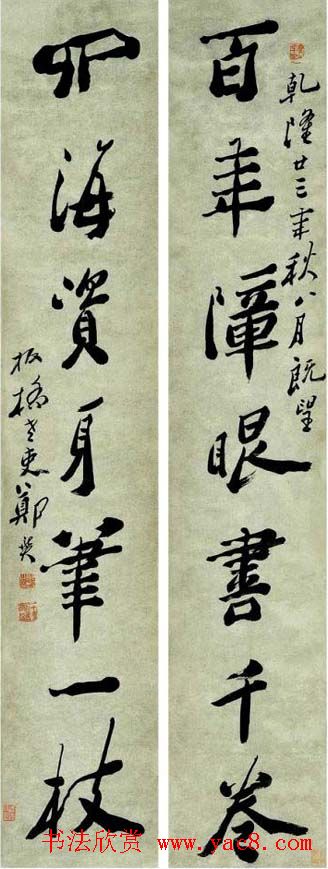 乾隆廿三年秋八月既望
百年障眼書千卷
四海資身筆一枝
板橋老人鄭燮
书法欣赏 www.yac8.com